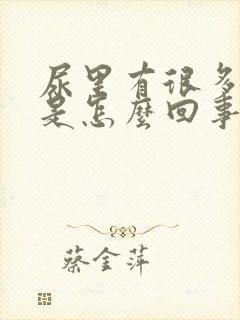 尿里有很多
是怎麼回事
蔡金萍